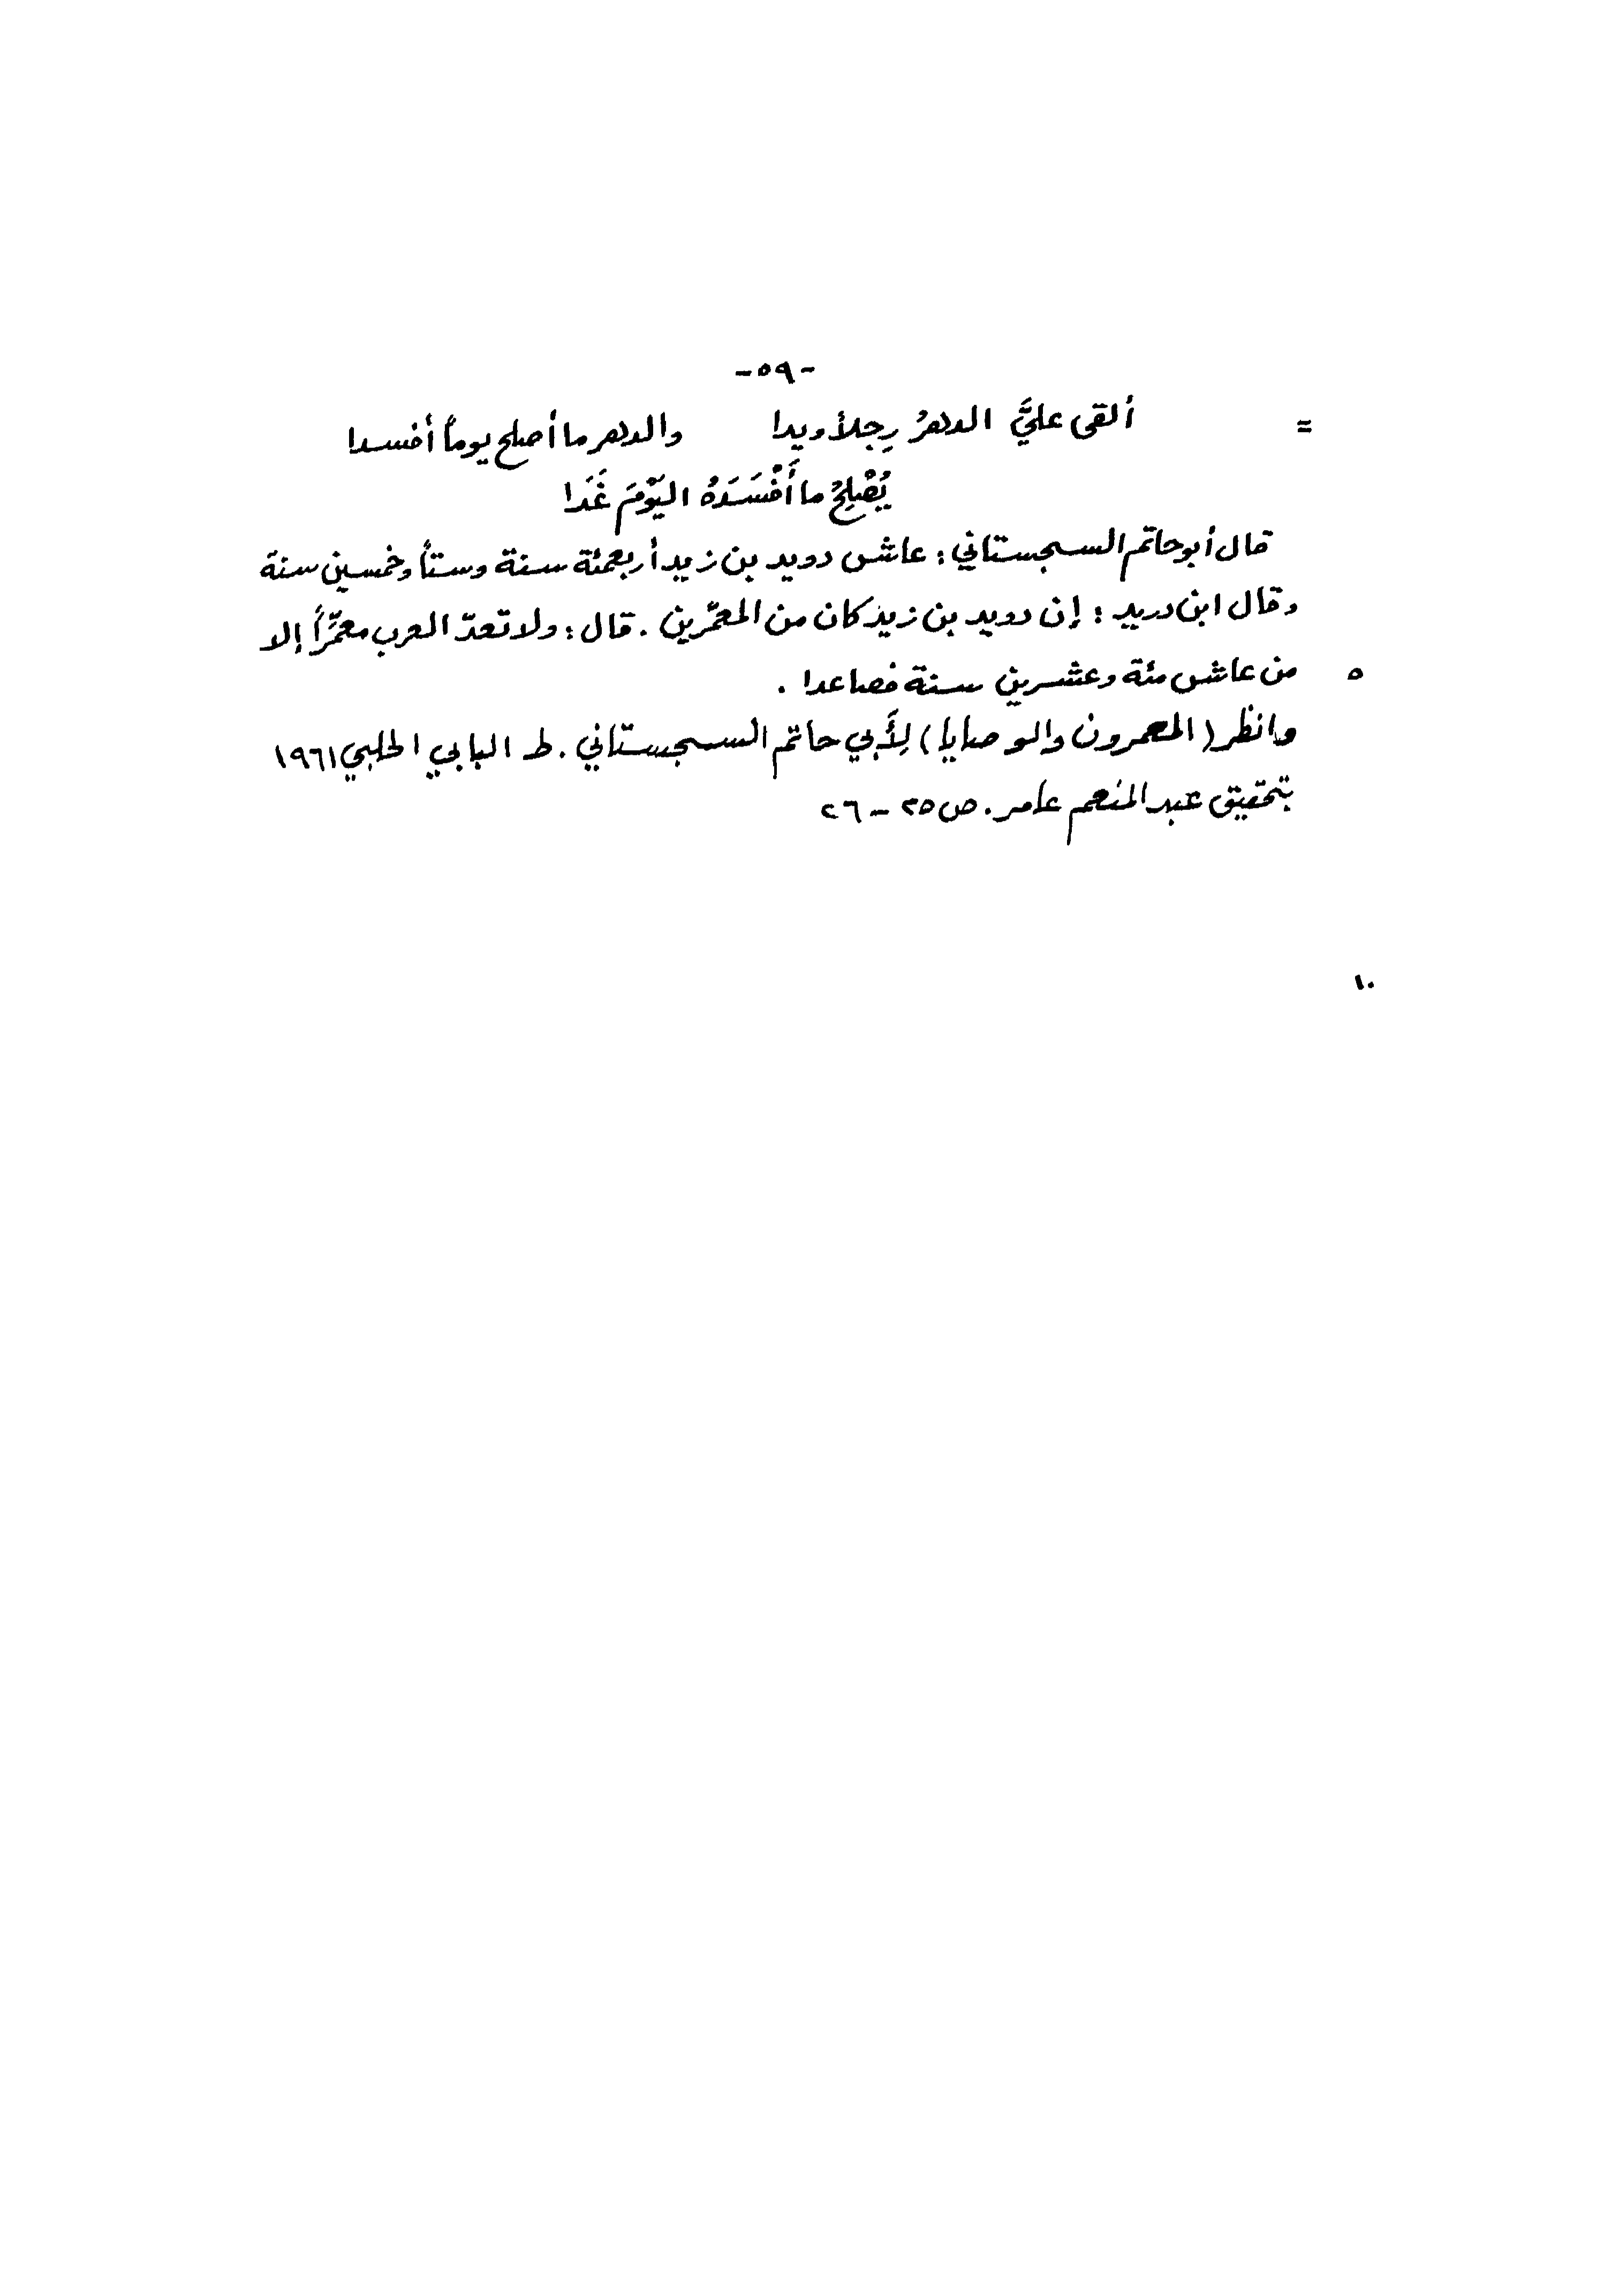 -٥٩-
= ألقى عليَّ الدهرُ رِجلاً ويدا والدهر ما أصلح يوماً أفسدا
يُصْلِحُ ما أَفْسَدَهُ اليَوْمَ غَدا
قال أبو حاتم السجستاني : عاش دويد بن زيد أربعمئة سنة وستاً وخمسين سنة
وقال ابن دريد : إن دويد بن زيد كان من المعمّرين . قال : ولا تعدّ العرب معمَّراً إلا
٥ من عاش مئة وعشرين سنة فصاعدا .
وانظر ( المعمرون والوصايا ) لِأَبي حاتم السجستاني . ط البابي الحلبي ١٩٦١
بتحقيق عبد المنعم عامر . ص ٢٥ - ٢٦
١٠